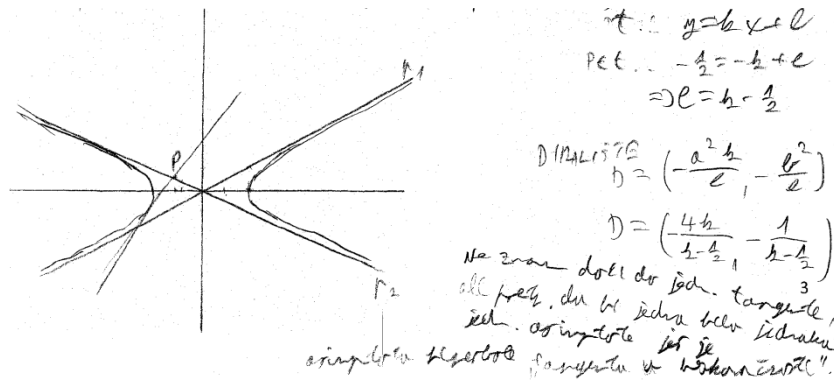 t... y=kx+l
P∈t... -1/2=-k+l
⇒l=k-1/2
DIRALIŠTE
D=(-a²k/l, -b²/l)
D=(-4k/(k-1/2), -1/(k-1/2))
P
r1
r2
Ne znam doći do jedn. tangente,
ali pretp. da bi jedna bila jednaka
jedn. asimptote jer je
asimptota hiperbole "tangenta u beskonačnosti".